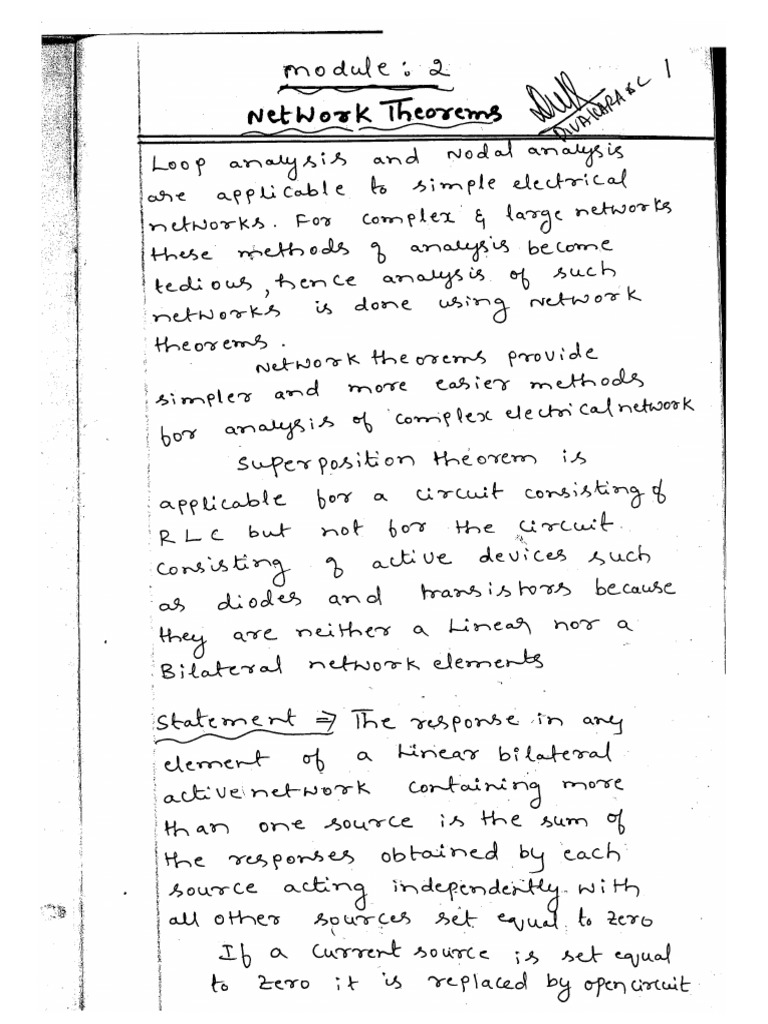 module: 2
1
Network Theorems
DIVAKARA S C
Loop analysis and Nodal analysis
are applicable to simple electrical
networks. For complex & large networks
these methods of analysis become
tedious, hence analysis of such
networks is done using Network
theorems.
Network theorems provide
simpler and more easier methods
for analysis of complex electrical network
Superposition theorem is
applicable for a circuit consisting of
RLC but not for the circuit
consisting of active devices such
as diodes and transistors because
they are neither a Linear nor a
Bilateral network elements
Statement ⇒ The response in any
element of a Linear bilateral
active network containing more
than one source is the sum of
the responses obtained by each
source acting independently with
all other sources set equal to zero
If a current source is set equal
to zero it is replaced by open circuit